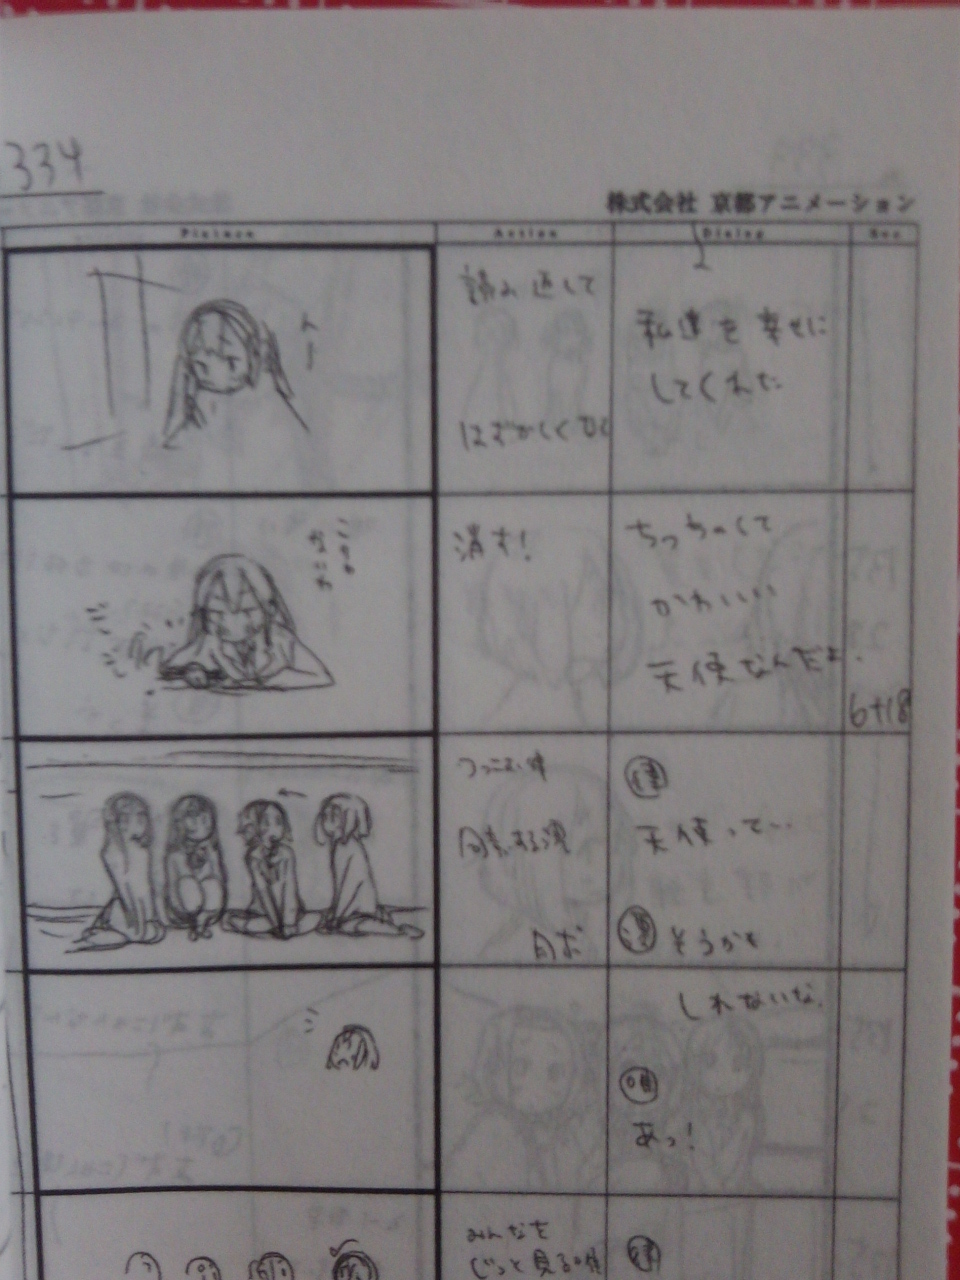 334
株式会社 京都アニメーション
Picture
Action
Dialog
Sec
読み返して
はずかしくなる
私達を幸せに
してくれた
こりゃ
ないわ
消す!
ちっちゃくて
かわいい
天使なんだよ.
6+18
律
天使って‥
澪 そうかも
しれないな.
唯
あっ!
みんなを
じっと見る
律